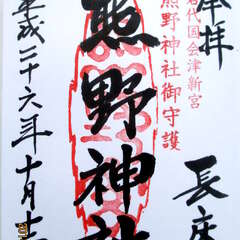 奉拝
長床
岩代国会津新宮
熊野神社御守護
熊野神社
平成二十六年十月十